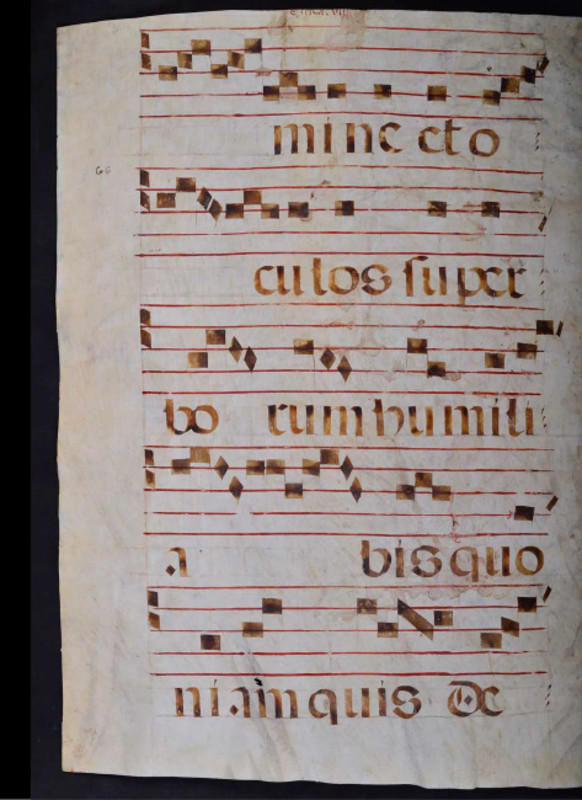 mine et o
culos super
bo rum humili
a bis quo
niam quis De